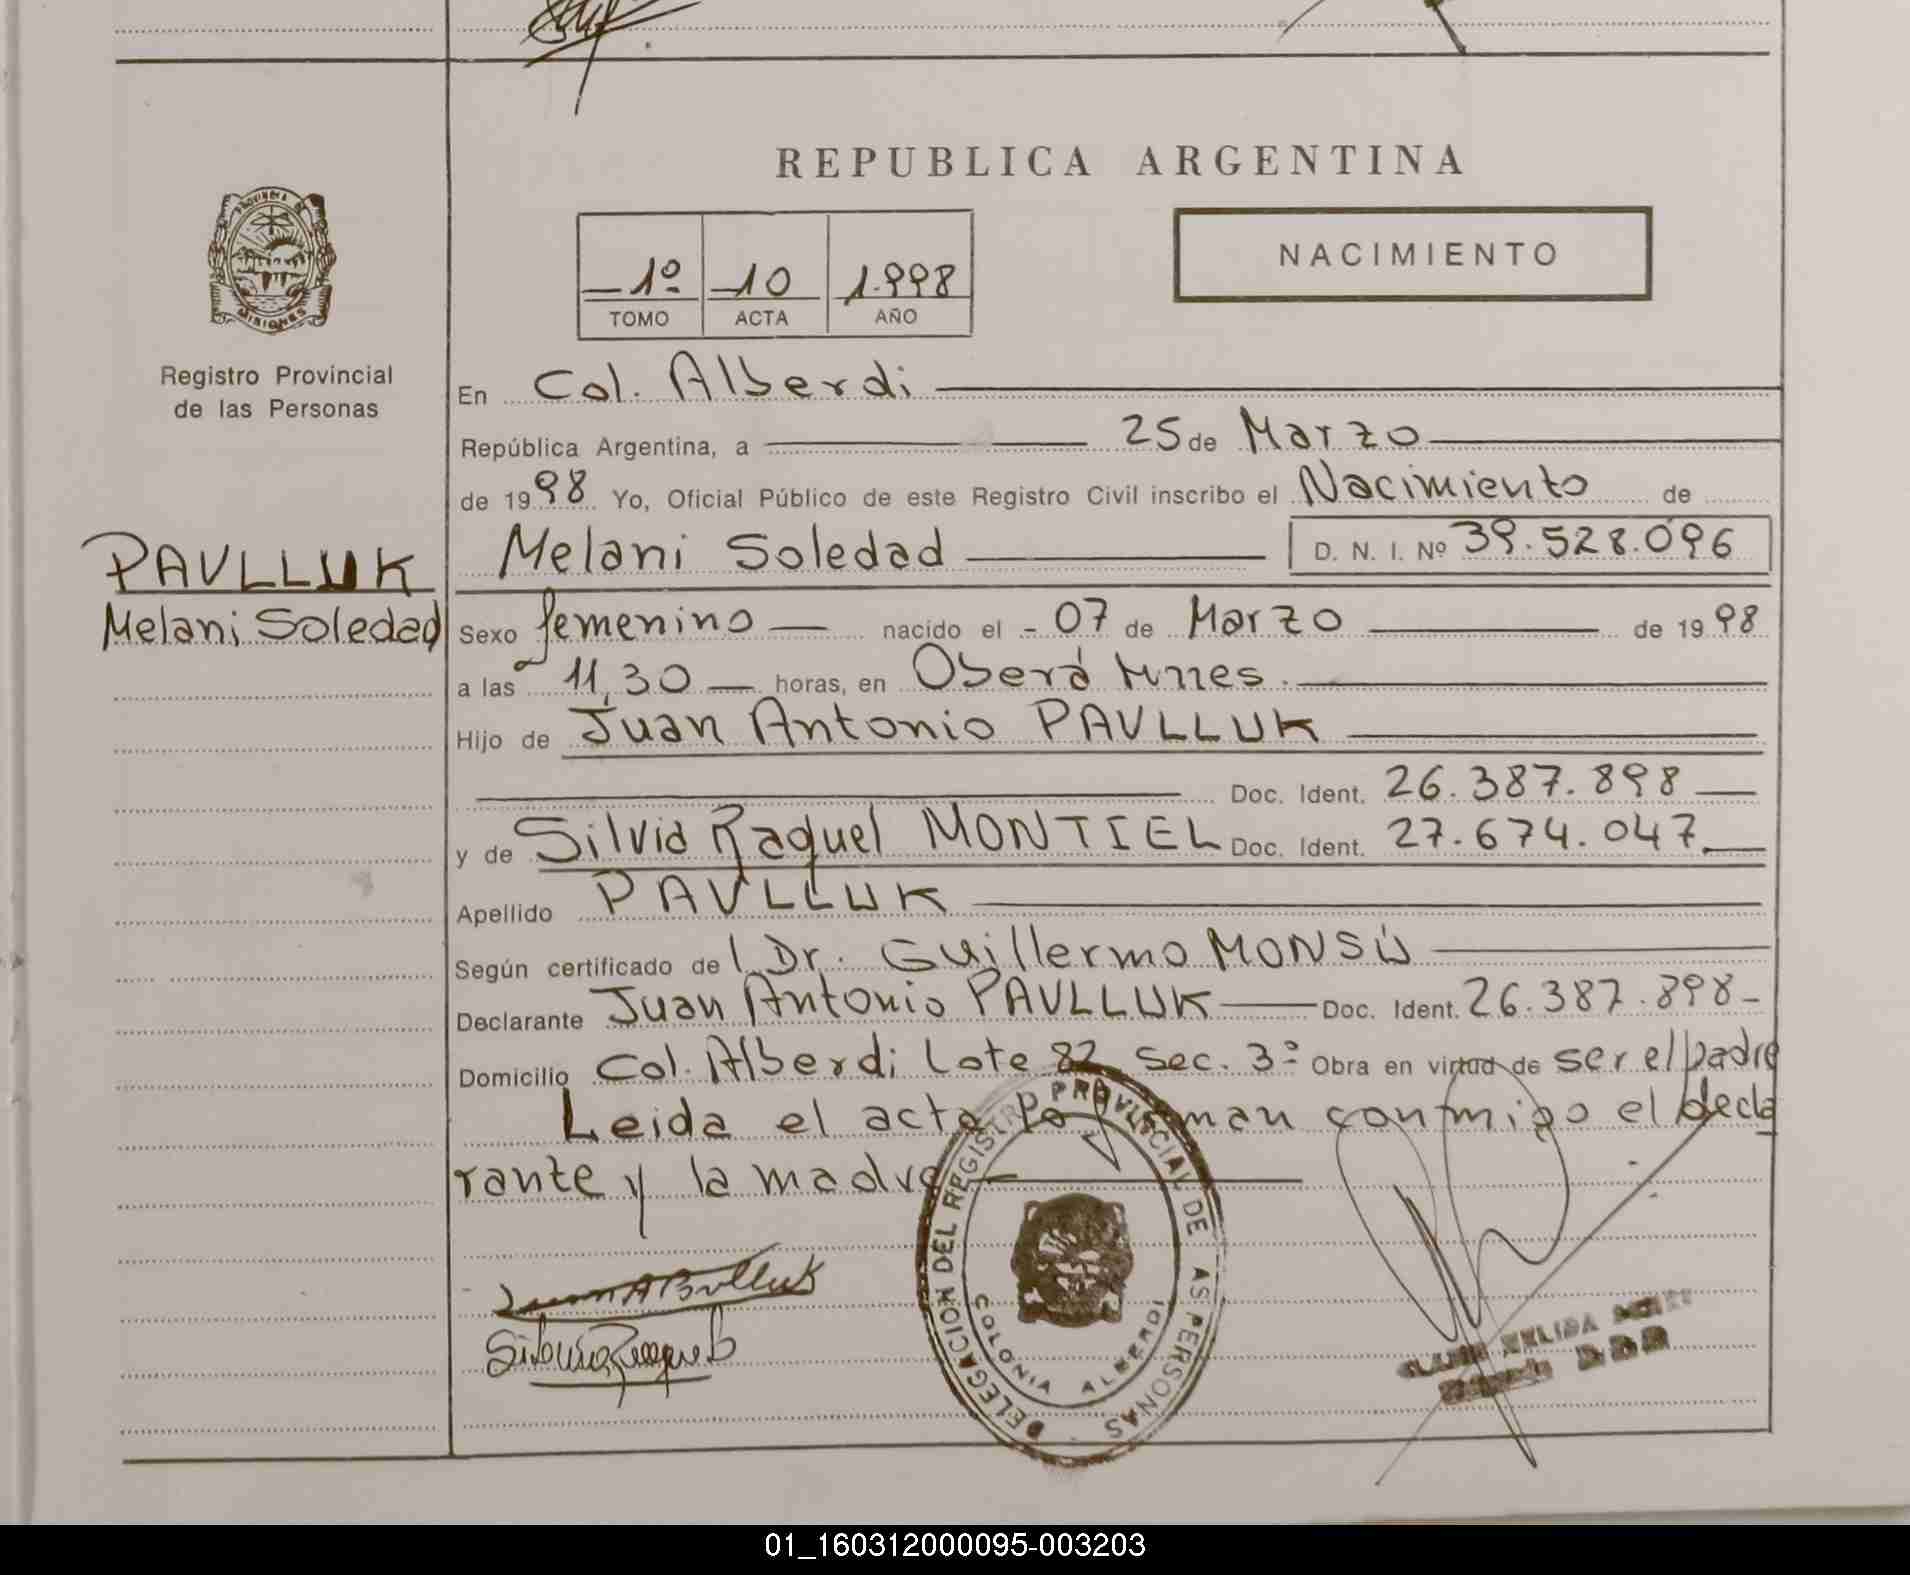 REPUBLICA ARGENTINA
PROVINCIA DE
MISIONES
1º 10 1.998
TOMO ACTA AÑO
NACIMIENTO
Registro Provincial
de las Personas
PAVLLUK
Melani Soledad
En Col. Alberdi
República Argentina, a 25 de Marzo
de 1998 Yo, Oficial Público de este Registro Civil inscribo el Nacimiento de
Melani Soledad D. N. I. Nº 39.528.096
Sexo femenino nacido el - 07 de Marzo de 1998
a las 11,30 horas, en Oberá Mnes.
Hijo de Juan Antonio PAVLLUK
Doc. Ident. 26.387.898
y de Silvia Raquel MONTIEL Doc. Ident. 27.674.047.
Apellido PAVLLUK
Según certificado del Dr. Guillermo MONSÚ
Declarante Juan Antonio PAVLLUK Doc. Ident. 26.387.898-
Domicilio Col. Alberdi Lote 82 Sec. 3ª Obra en virtud de ser el padre
Leida el acta la firman conmigo el decla
rante y la madre
DELEGACION DEL REGISTRO PROVINCIAL DE LAS PERSONAS
COLONIA ALBERDI
Juan A Pavlluk
Silvia Raquel
01_160312000095-003203